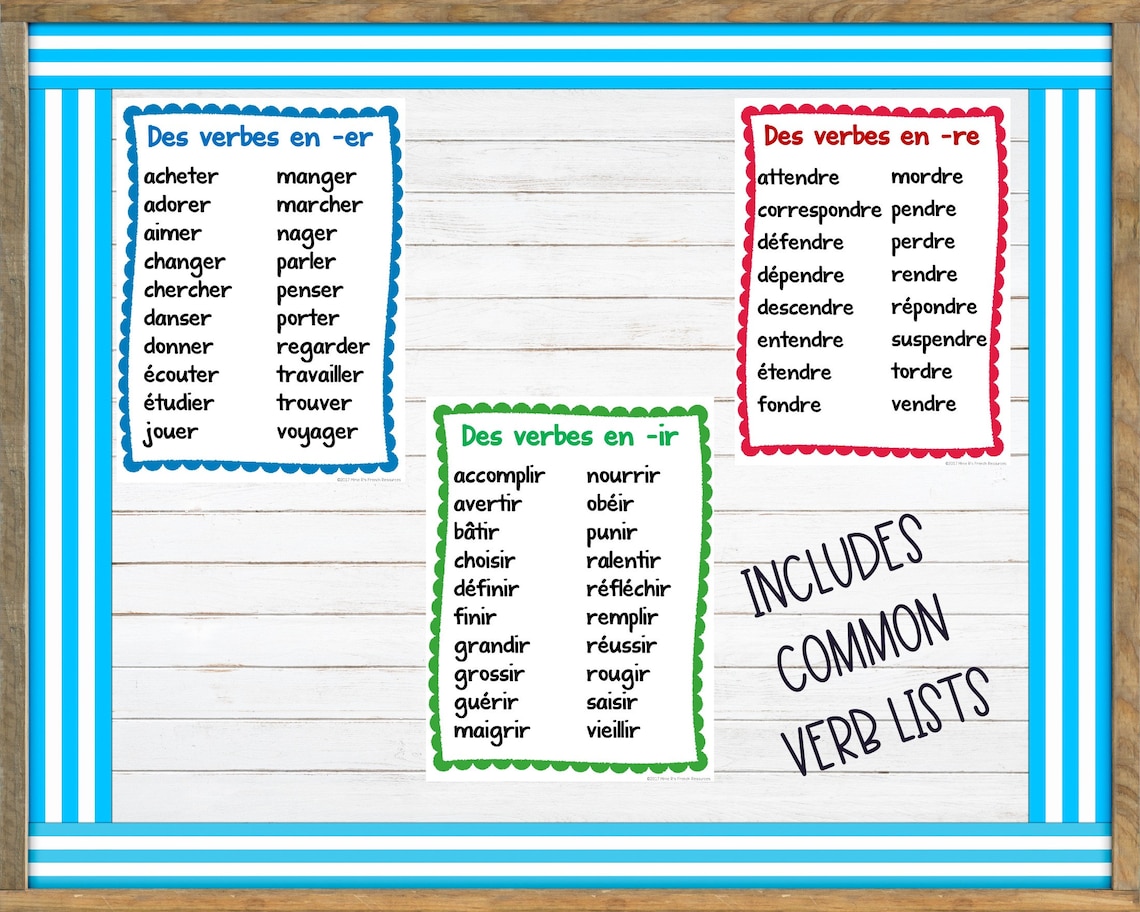 Des verbes en -er
acheter manger
adorer marcher
aimer nager
changer parler
chercher penser
danser porter
donner regarder
écouter travailler
étudier trouver
jouer voyager
©2017 Mme R's French Resources
Des verbes en -ir
accomplir nourrir
avertir obéir
bâtir punir
choisir ralentir
définir réfléchir
finir remplir
grandir réussir
grossir rougir
guérir saisir
maigrir vieillir
©2017 Mme R's French Resources
Des verbes en -re
attendre mordre
correspondre pendre
défendre perdre
dépendre rendre
descendre répondre
entendre suspendre
étendre tordre
fondre vendre
INCLUDES
COMMON
VERB LISTS